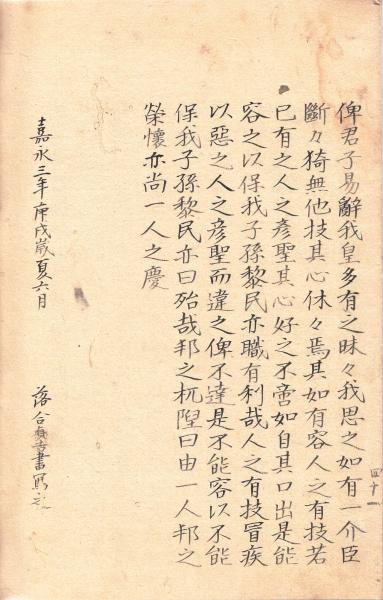 俾君子易辭我皇多有之昧々我思之如有一介臣
斷々猗無他技其心休々焉其如有容人之有技若
已有之人之彦聖其心好之不啻如自其口出是能
容之以保我子孫黎民亦職有利哉人之有技冒疾
以惡之人之彦聖而違之俾不達是不能容以不能
保我子孫黎民亦曰殆哉邦之杌隉曰由一人邦之
榮懷亦尚一人之慶
嘉永三年庚戌歲夏六月
落合書寫之
四十一